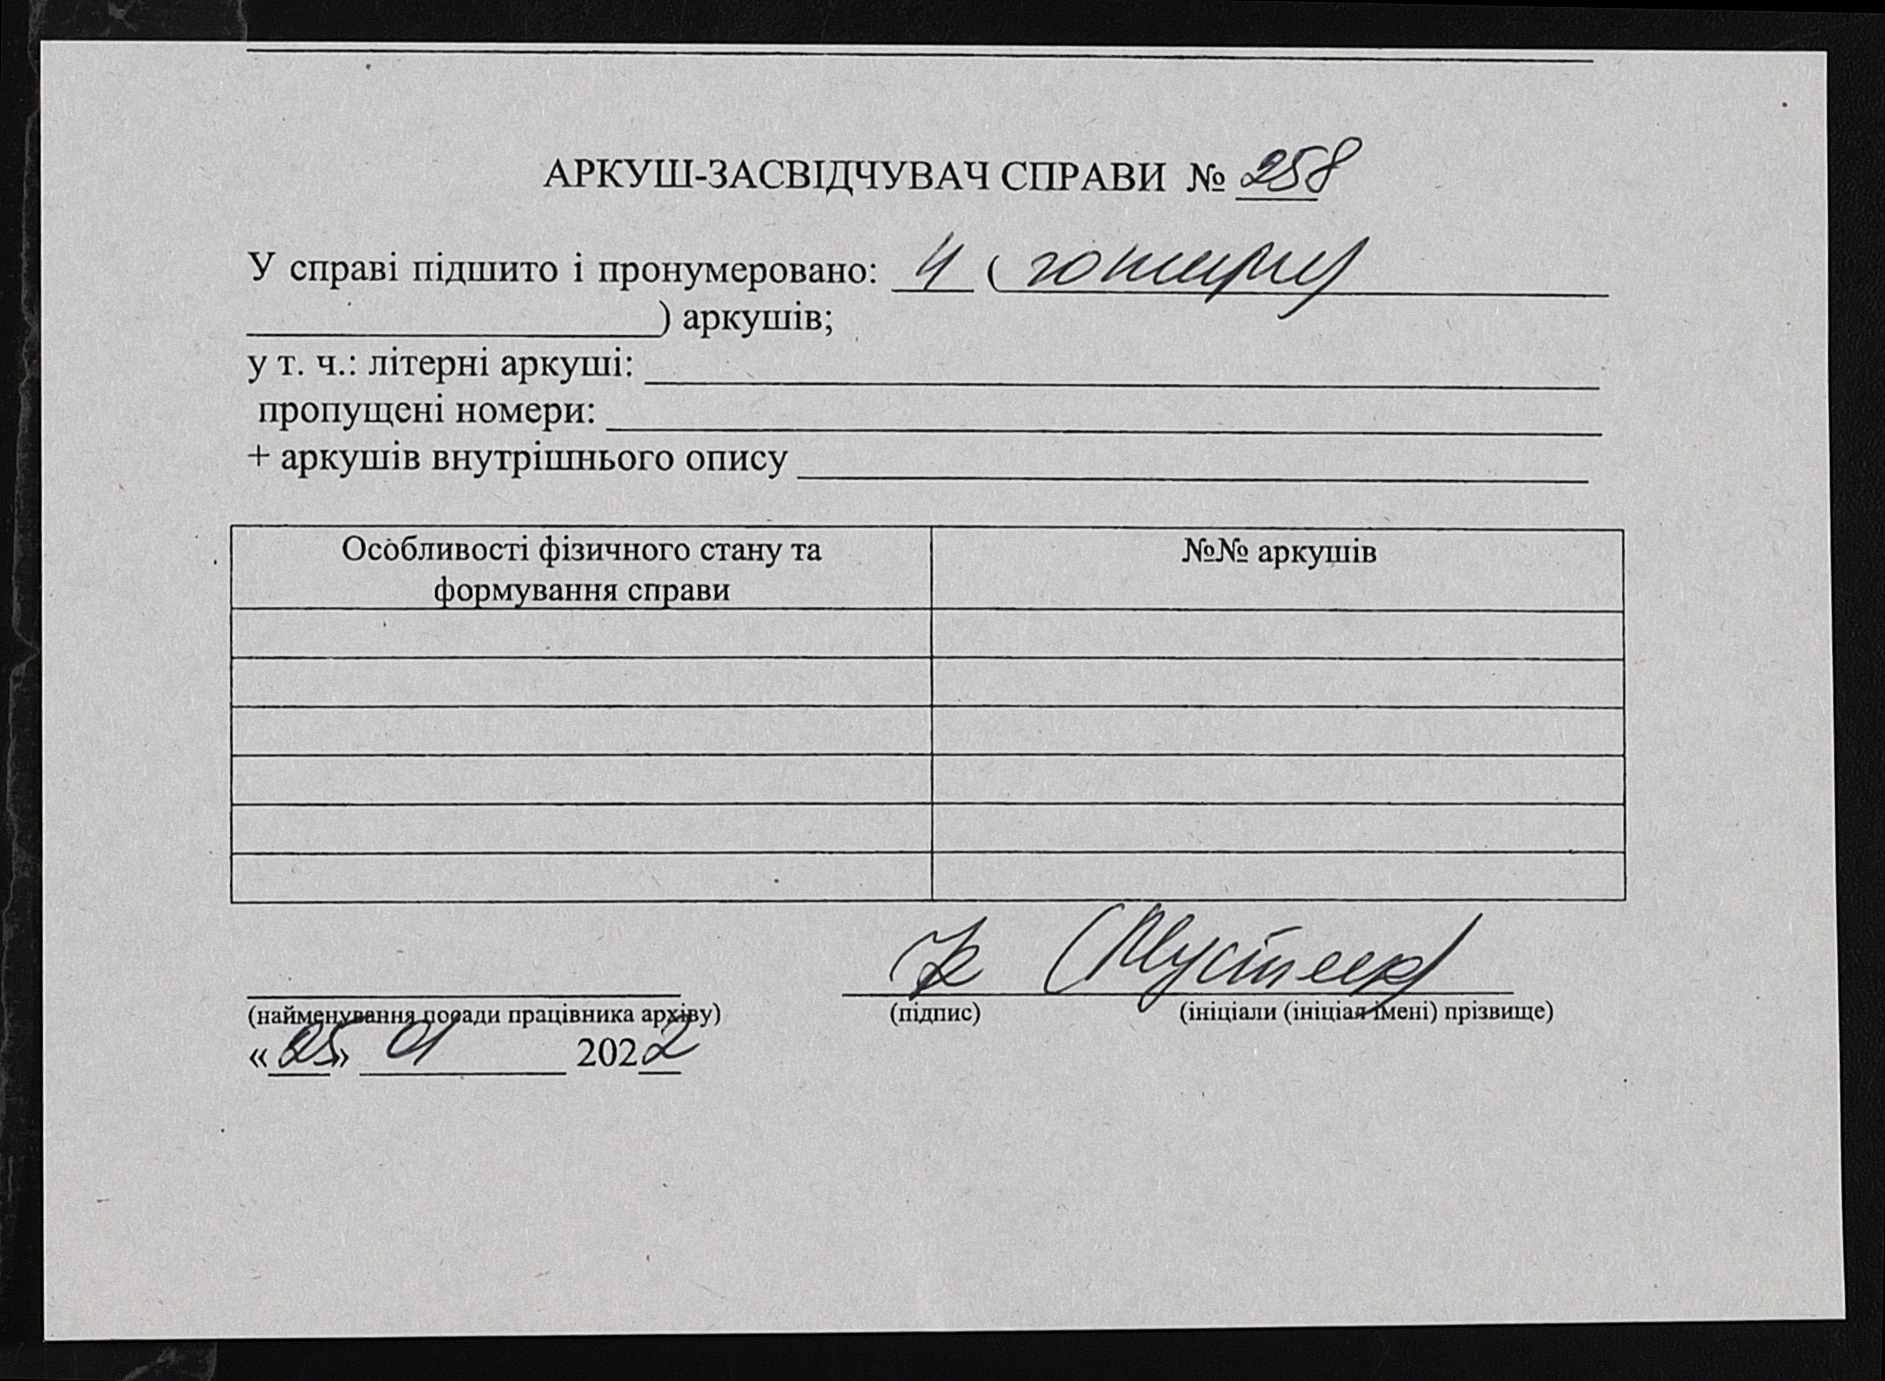 АРКУШ-ЗАСВІДЧУВАЧ СПРАВИ № 258
У справі підшито і пронумеровано: 4 ( чотири
) аркушів;
у т. ч.: літерні аркуші:
пропущені номери:
+ аркушів внутрішнього опису
Особливості фізичного стану та
формування справи
№№ аркушів
(найменування посади працівника архіву) (підпис) (ініціали (ініціал імені) прізвище)
«25» 01 2022